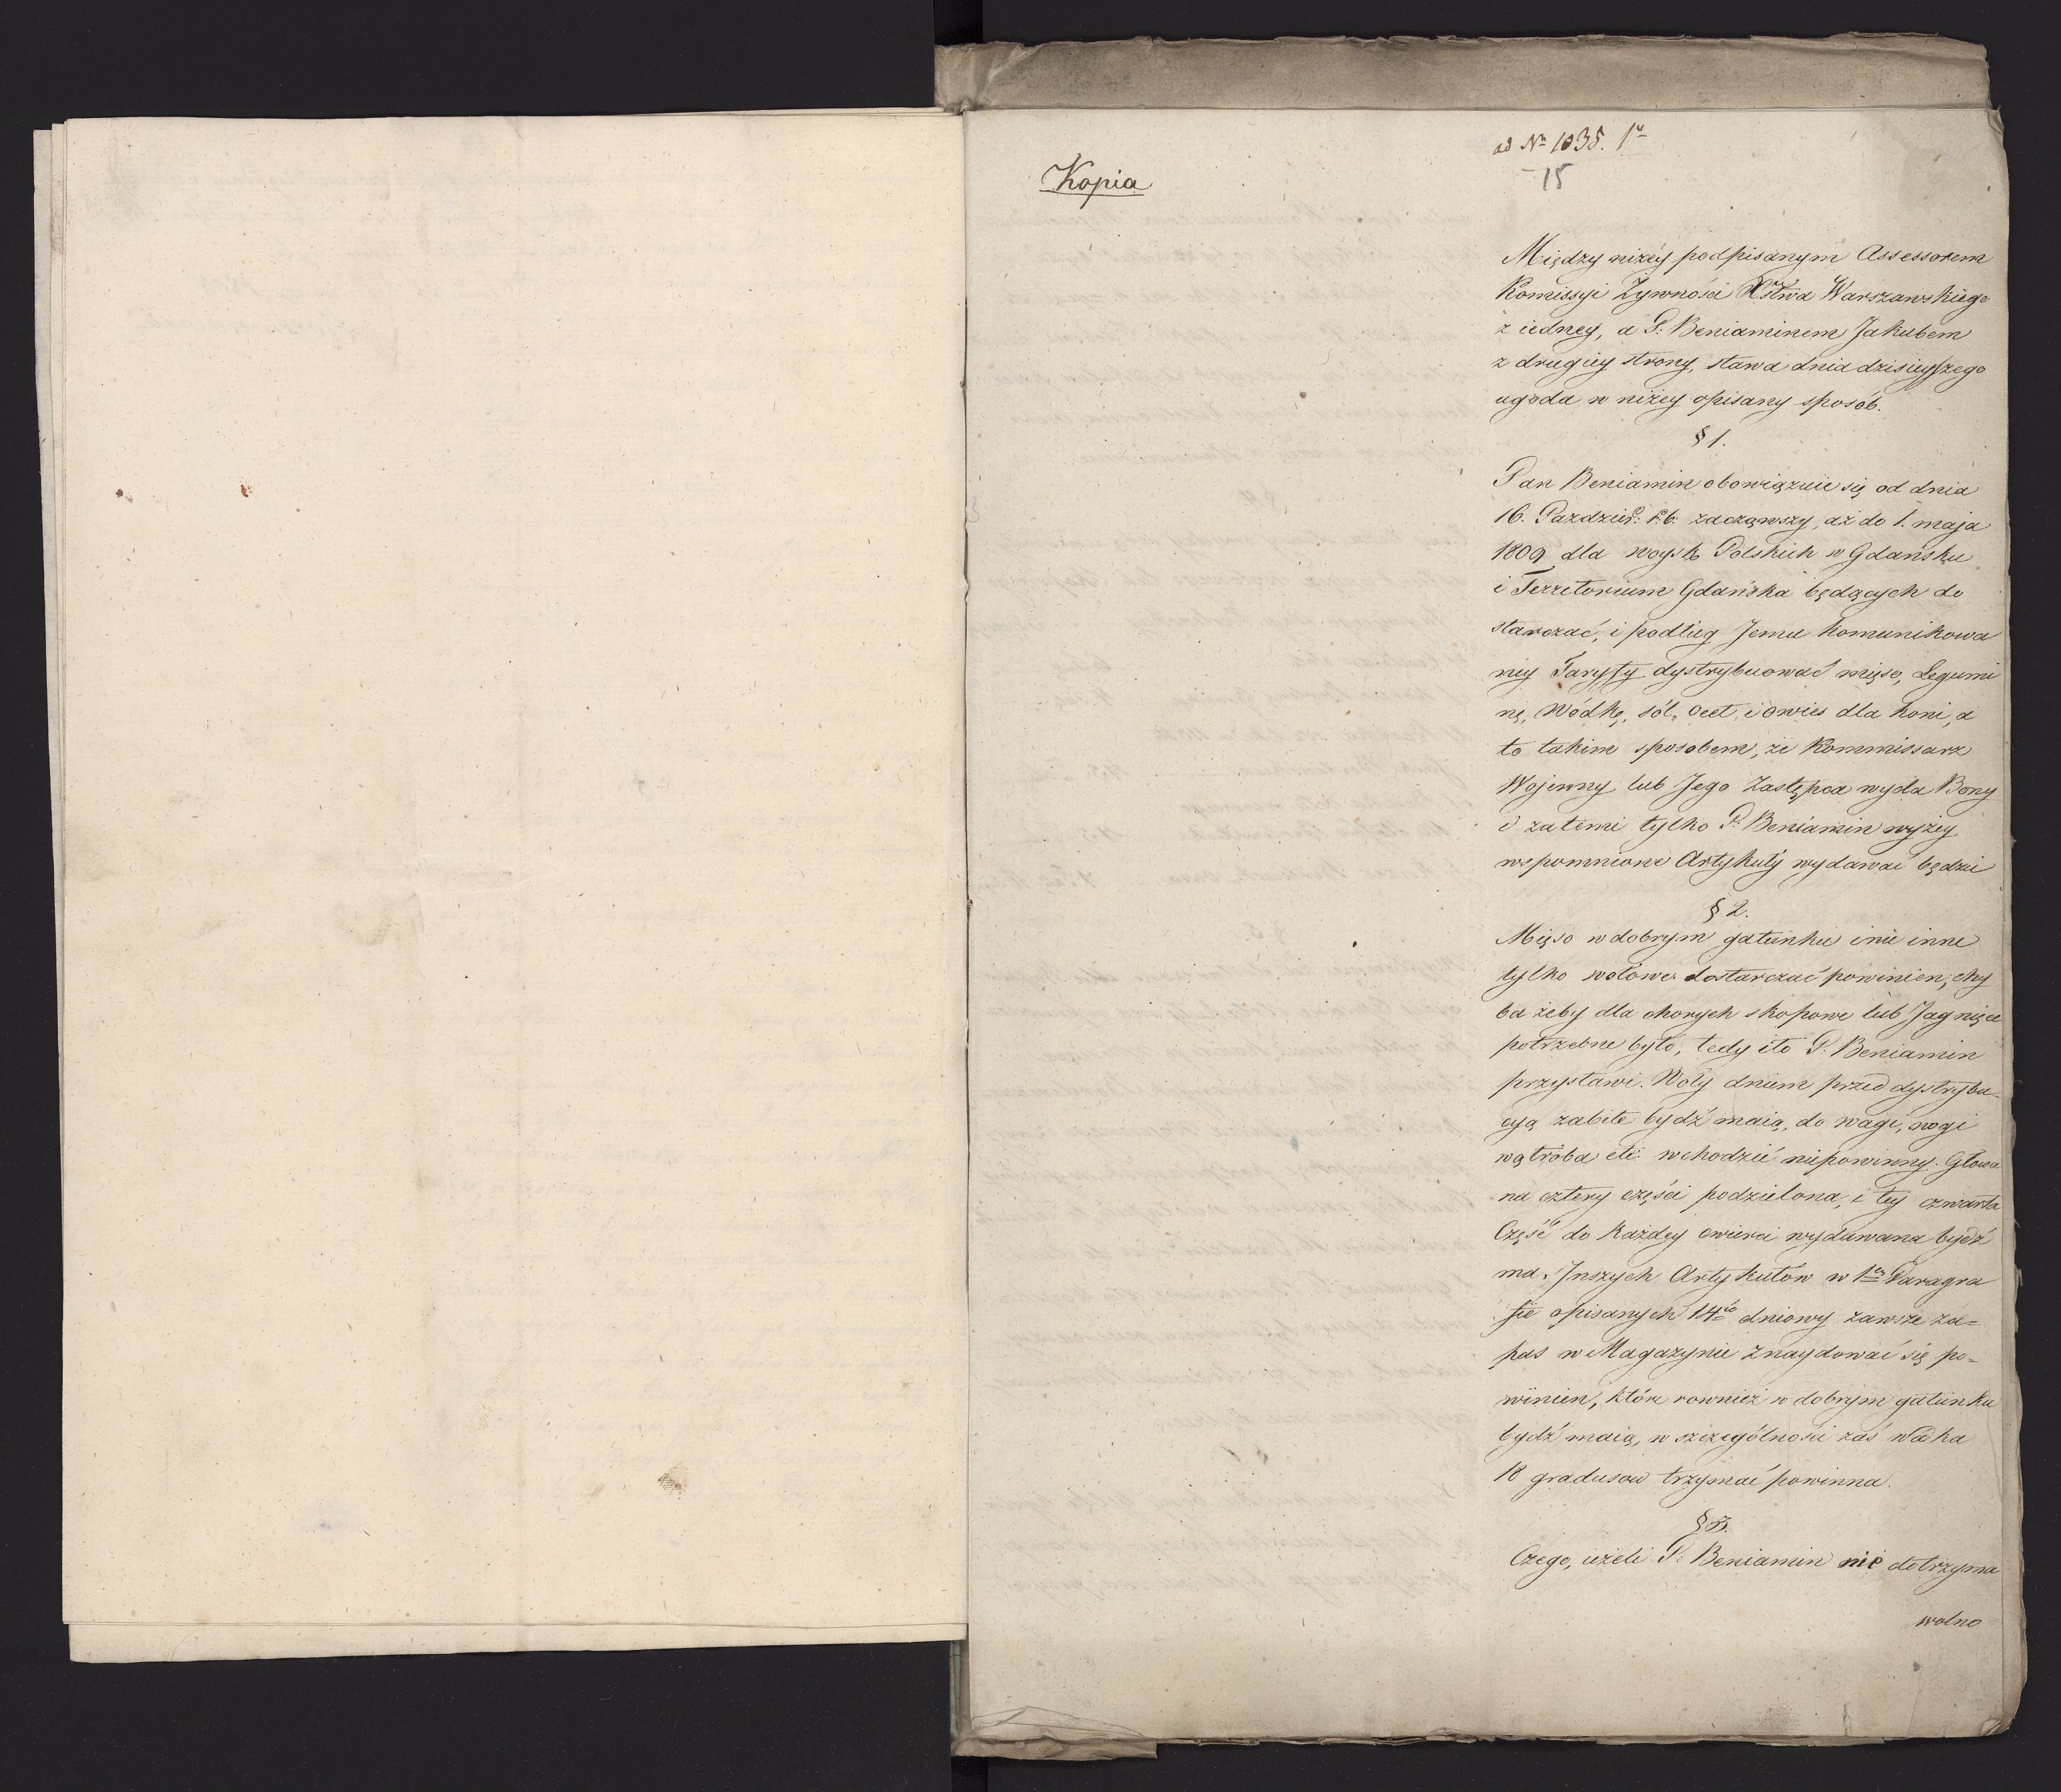 ad No 1035. 1o
15
Kopia
Między niżey podpisanym Assessorem
Komissyi Żywności Xstwa Warszawskiego
z iedney, a P: Beniaminem Jakubem
z drugiey strony, stawa dnia dzisieyszego
ugoda w niżey opisany sposób.
§ 1.
Pan Beniamin obowiązuie się od dnia
16. Pazdzier: r: b: zacząwszy, aż do 1. maja
1809 dla woysk Polskich w Gdańsku
i Territorium Gdańska będących do
starczać, i podług Jemu komunikowa
ney Taryffy dystrybuować mięso, Legumi
nę, Wódkę, sól, ocet, i owies dla koni, a
to takim sposobem, że Kommissarz
Wojenny lub Jego Zastępca wyda Bony
i za temi tylko P: Beniamin wyżey
wspomnione Artykuły wydawać będzie
§ 2.
Mięso w dobrym gatunku i nie inne
tylko wołowe dostarczać powinien, chy
ba żeby dla chorych skopowe lub Jagnięce
potrzebne było, tedy i to P: Beniamin
przystawi. Woły dniem przed dystrybu-
cyą zabite bydź maią, do wagi, nogi
wątroba etc: wchodzić niepowinny. Głowa
na cztery części podzielona, i tey czwarta
Część do każdey cwierci wydawana bydź
ma. Jnszych Artykułów w 1m Paragra
fie opisanych 14to dniowy zawsze za=
pas w Magazynie znaydować się po=
winien, które rownież w dobrym gatunku
bydź maią, w szczególności zaś Wodka
18 gradusow trzymać powinna.
§ 3.
Czego, ieżeli P: Beniamin nie dotrzyma
wolno